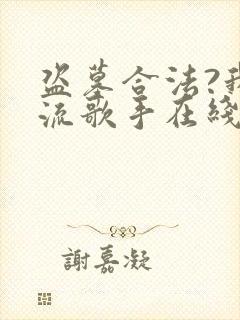 盗墓合法?我
流歌手在綫
謝嘉凝